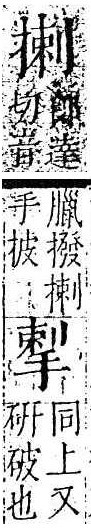 揦
郎達
切音
臘撥揦
手披
揧
同上又
硏破也